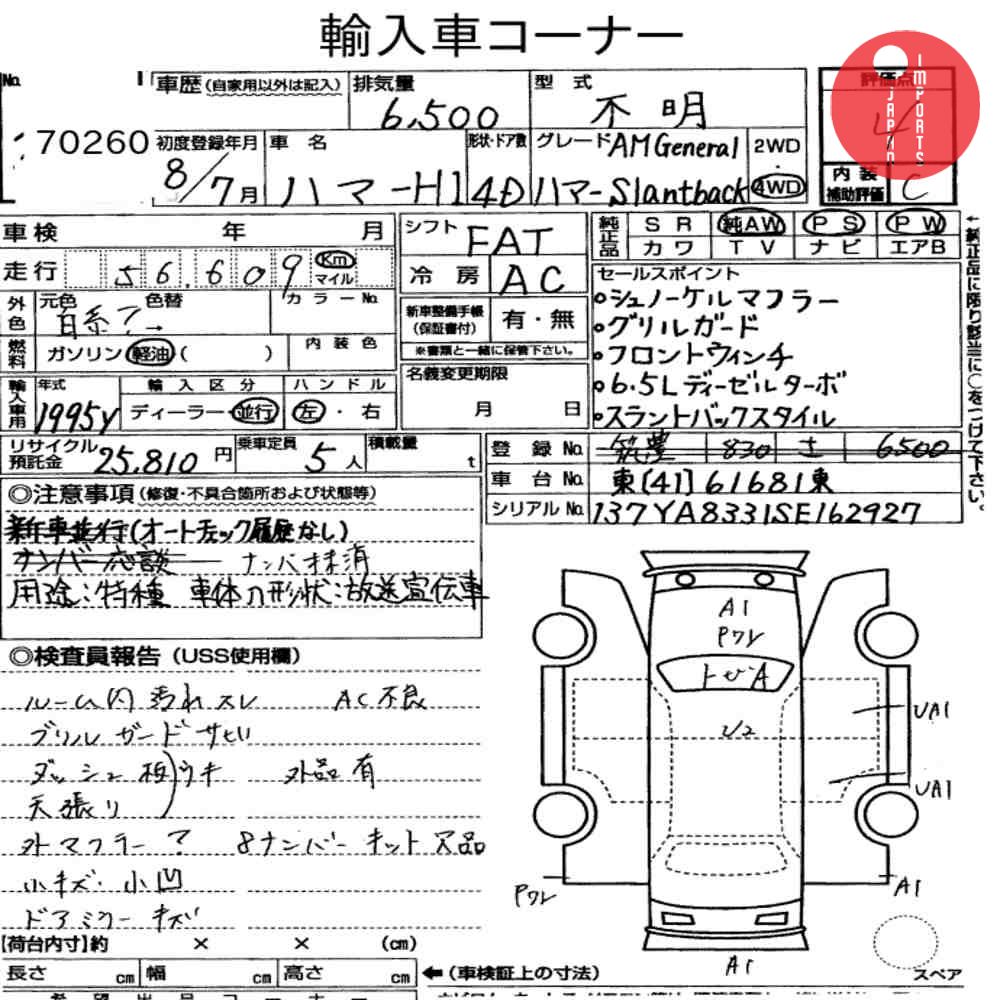 輸入車コーナー
JAPAN IMPORTS
No. 70260
車歴(自家用以外は記入)
排気量 6,500
型式 不明
評価点 4
初度登録年月 8/7月
車名 ハマーH1
形状・ドア数 4D
グレード AMGeneral ハマーSlantback
2WD 4WD
内装補助評価 C
車検 年 月
シフト FAT
純正品 SR 純AW PS PW
カワ TV ナビ エアB
←純正品に限り該当に○をつけて下さい。
走行 56.609 Km マイル
冷房 AC
セールスポイント
○シュノーケルマフラー
○グリルガード
○フロントウィンチ
○6.5Lディーゼルターボ
○スラントバックスタイル
外色 元色 白系? 色替 → カラーNo.
新車整備手帳(保証書付) 有・無
※書類と一緒に保管下さい。
燃料 ガソリン 軽油 ( ) 内装色
名義変更期限 月 日
輸入車用 年式 1995y
輸入区分 ディーラー・並行
ハンドル 左・右
リサイクル預託金 25,810円
乗車定員 5人
積載量 t
登録No. 筑豊 830 さ 6500
車台No. 東[41]61681東
シリアルNo. 137YA8331SE162927
◎注意事項(修復・不具合箇所および状態等)
新車並行(オートチェック履歴なし)
ナンバー応談 ナンバ抹消
用途:特種 車体の形状:放送宣伝車
◎検査員報告(USS使用欄)
ルーム内汚れスレ AC不良
グリルガードサビ
ダッシュ板)ウキ 外品有
天張り
外マフラー? 8ナンバーキット欠品
小キズ・小凹
ドアミラーキズ
A1
Pワレ
トビA
UA1
UA1
Pワレ
A1
A1
スペア
【荷台内寸】約 × × (cm)
長さ cm 幅 cm 高さ cm
←(車検証上の寸法)